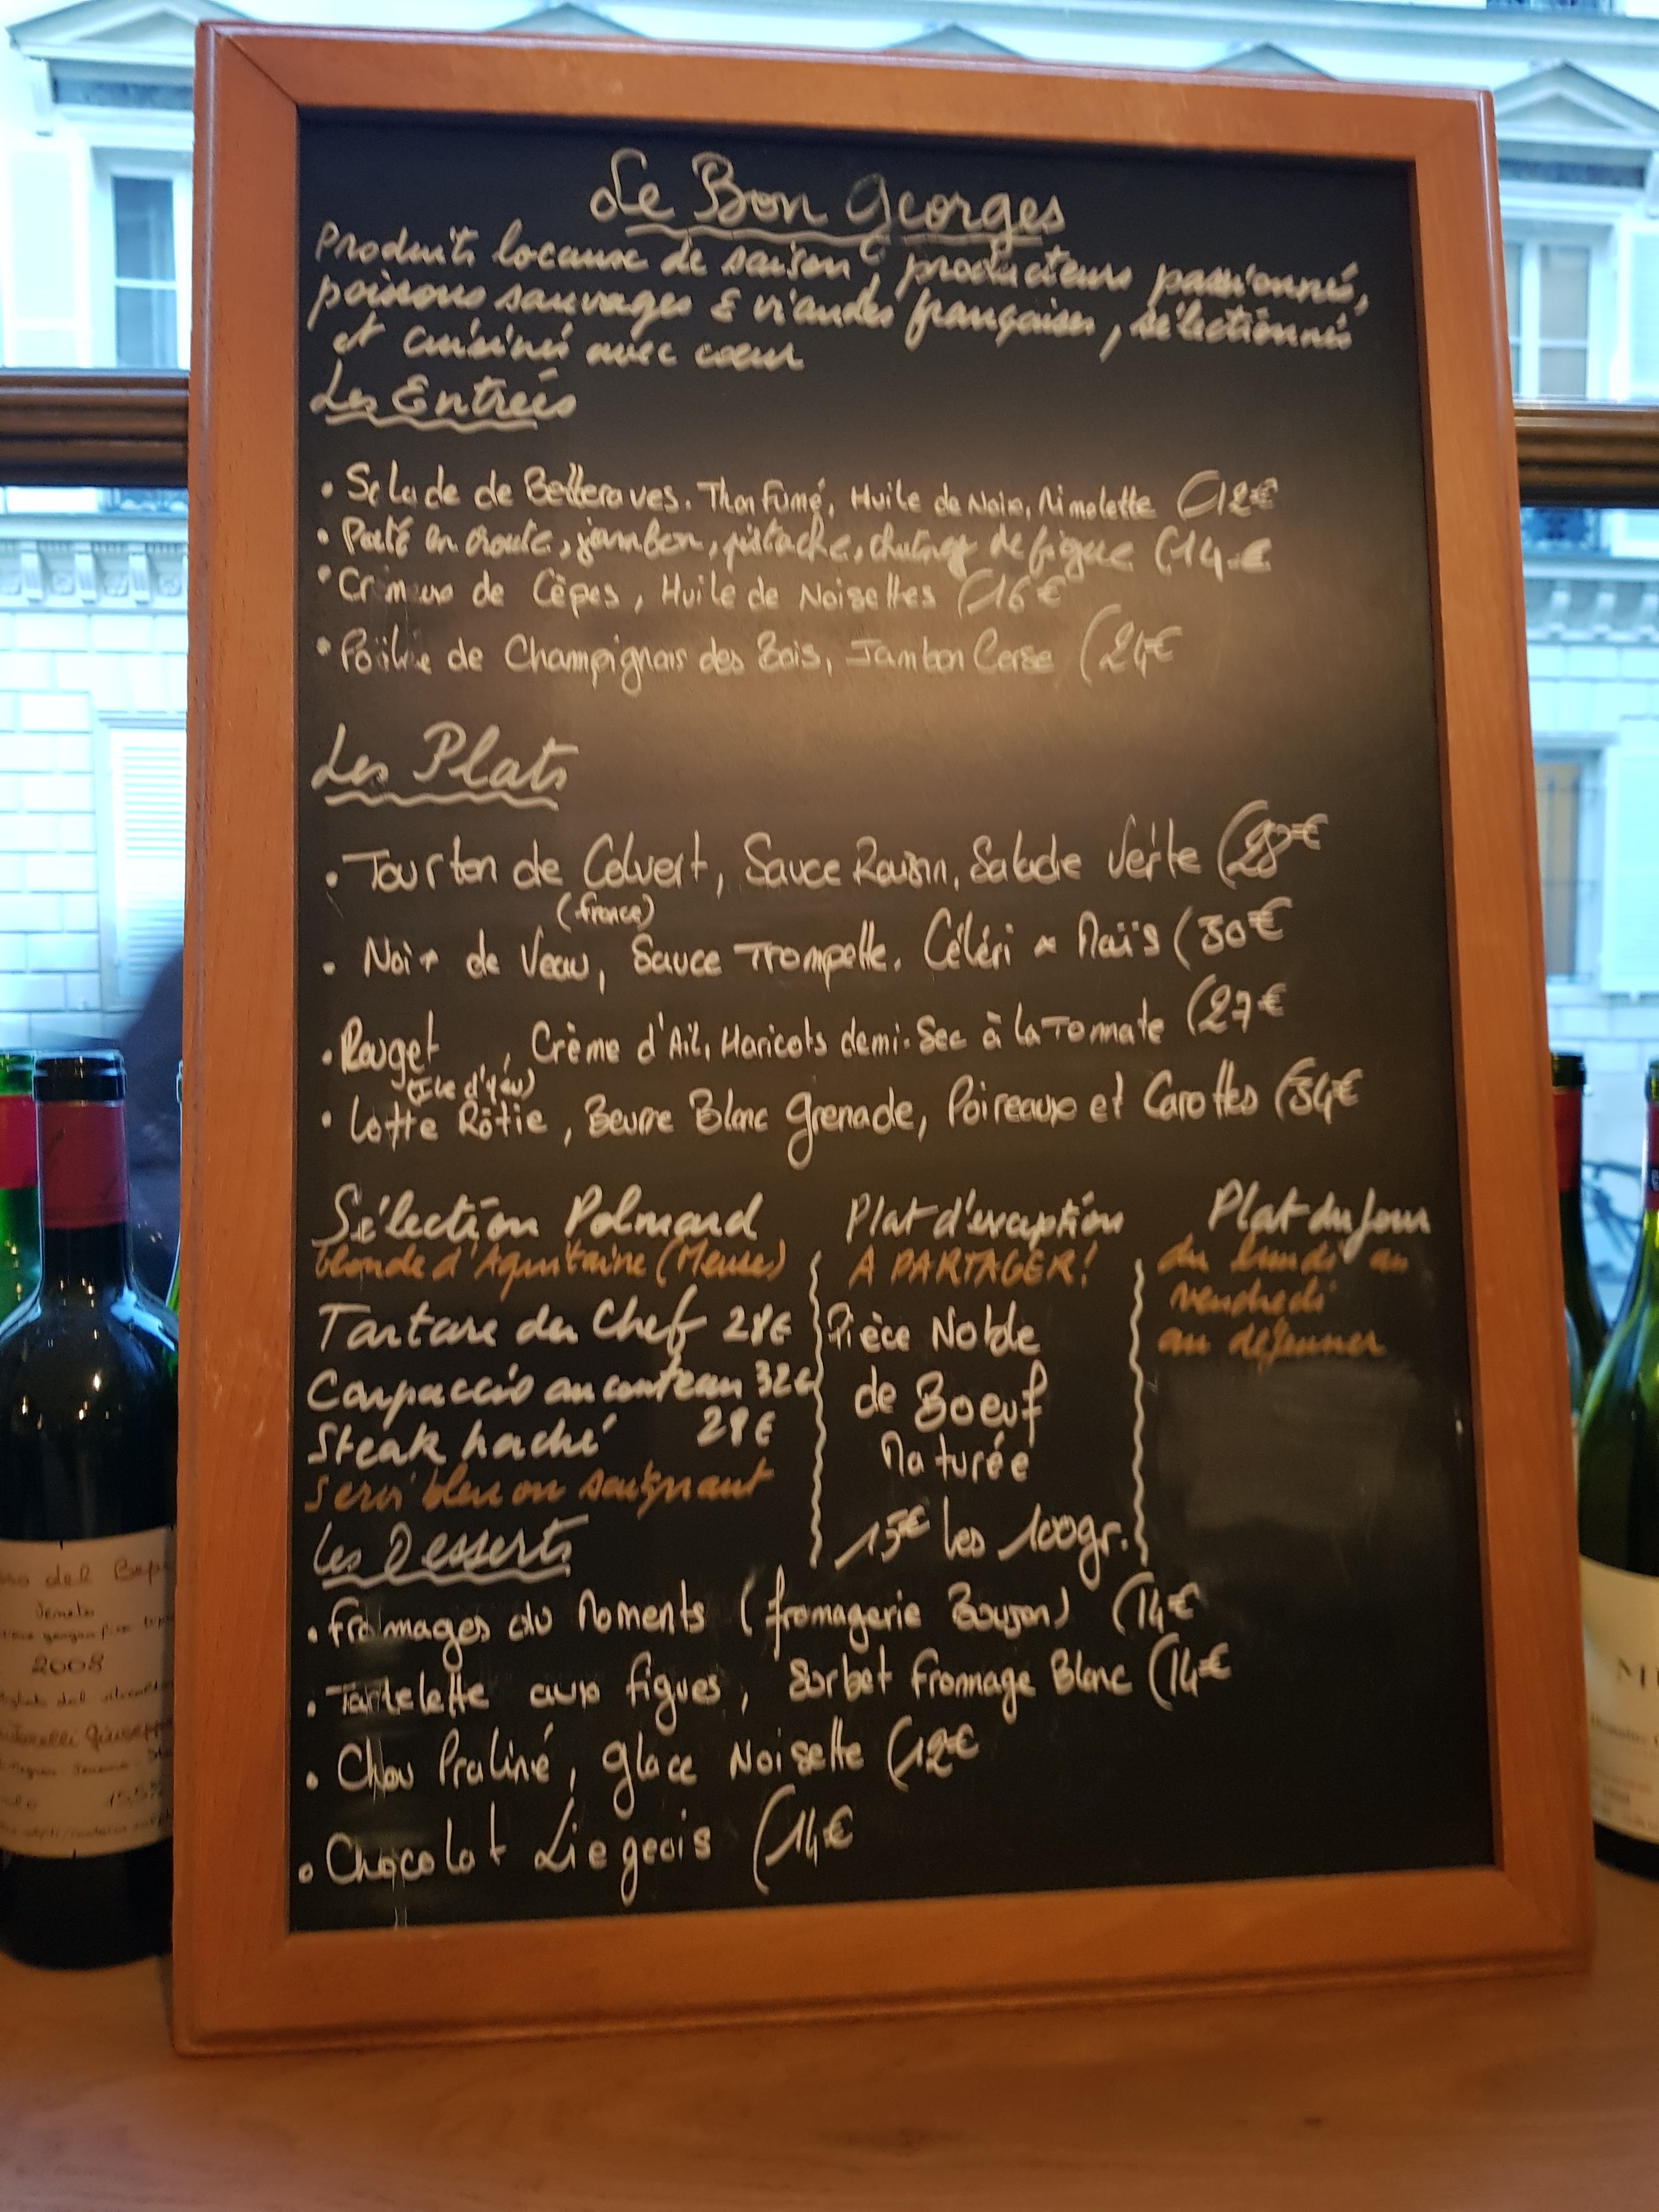 Le Bon Georges
Produits locaux de saison, producteurs passionnés,
poissons sauvages & viandes françaises, sélectionnés
et cuisinés avec coeur
Les Entrées
• Salade de Betteraves. Thon Fumé, Huile de Noix, Mimolette (12€
• Pâté en croute, jambon, pistache, chutney de figue (14€
• Crémeux de Cêpes, Huile de Noisettes (16€
• Poêlée de Champignons des Bois, Jambon Corse (24€
Les Plats
• Tourton de Colvert, Sauce Raisin, Salade Verte (28€
(France)
• Noix de Veau, Sauce Trompette, Céléri & Maïs (30€
• Rouget, Crème d'Ail, Haricots demi-Sec à la Tommate (27€
(Ile d'yeu)
• Lotte Rôtie, Beurre Blanc grenade, Poireaux et Carottes (34€
Sélection Polmard
blonde d'Aquitaine (Meuse)
Tartare du Chef 28€
Carpaccio au couteau 32€
Steak haché 28€
Servi bleu ou saignant
Plat d'exception
A PARTAGER!
Pièce Noble
de Boeuf
Maturée
15€ les 100gr.
Plat du Jour
du lundi au
vendredi
au déjeuner
Les Desserts
• Fromages du Moments (fromagerie Bouzon) (14€
• Tartelette aux figues, Sorbet Fromage Blanc (14€
• Chou Praliné, glace Noisette (12€
• Chocolat Liegeois (14€
2008